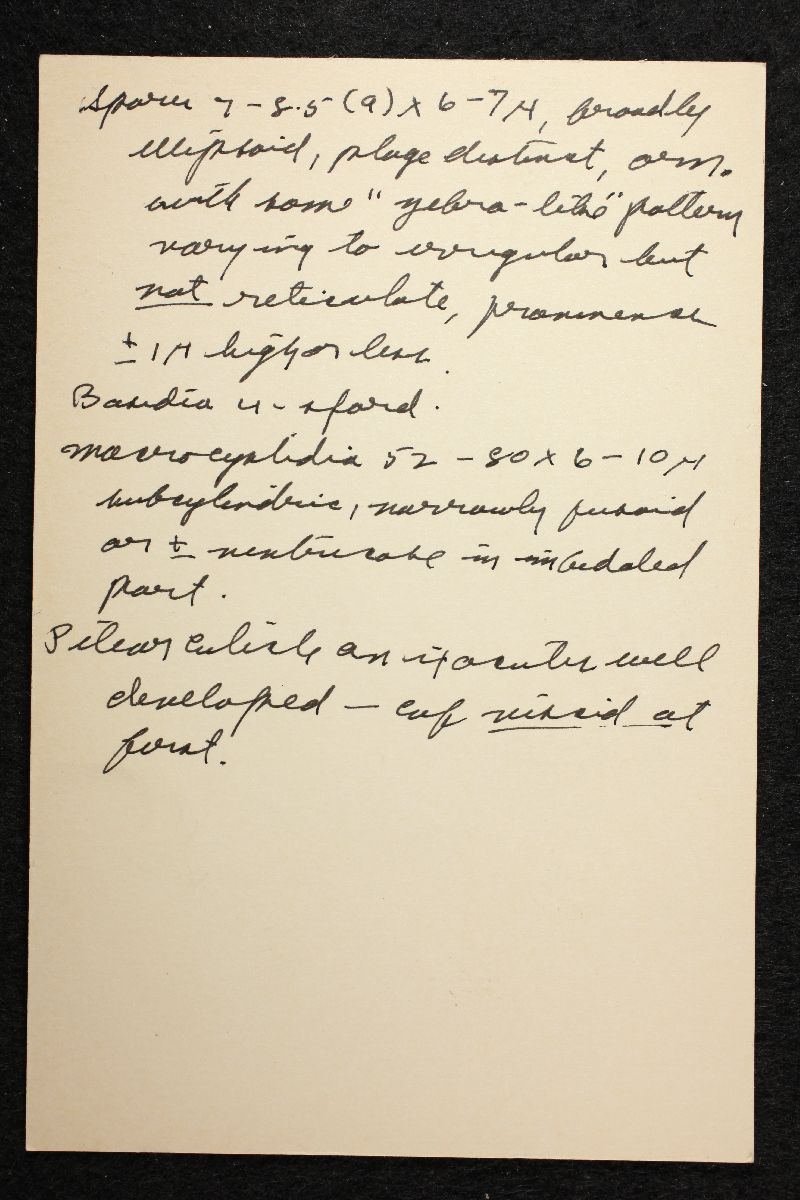 Spores 7-8.5 (9) x 6-7 µ, broadly
ellipsoid, plage distinct, orn.
with some "zebra-like" pattern
varying to irregular but
not reticulate, prominences
± 1 µ high or less.
Basidia 4-spored.
Macrocystidia 52-80 x 6-10 µ
subcylindric, narrowly fusoid
or ± ventricose in imbedded
part.
Pileus cuticle an ixocutis well
developed — cap viscid at
first.